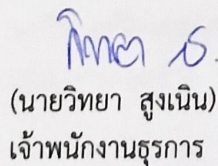 (นายวิทยา สูงเนิน)
เจ้าพนักงานธุรการ